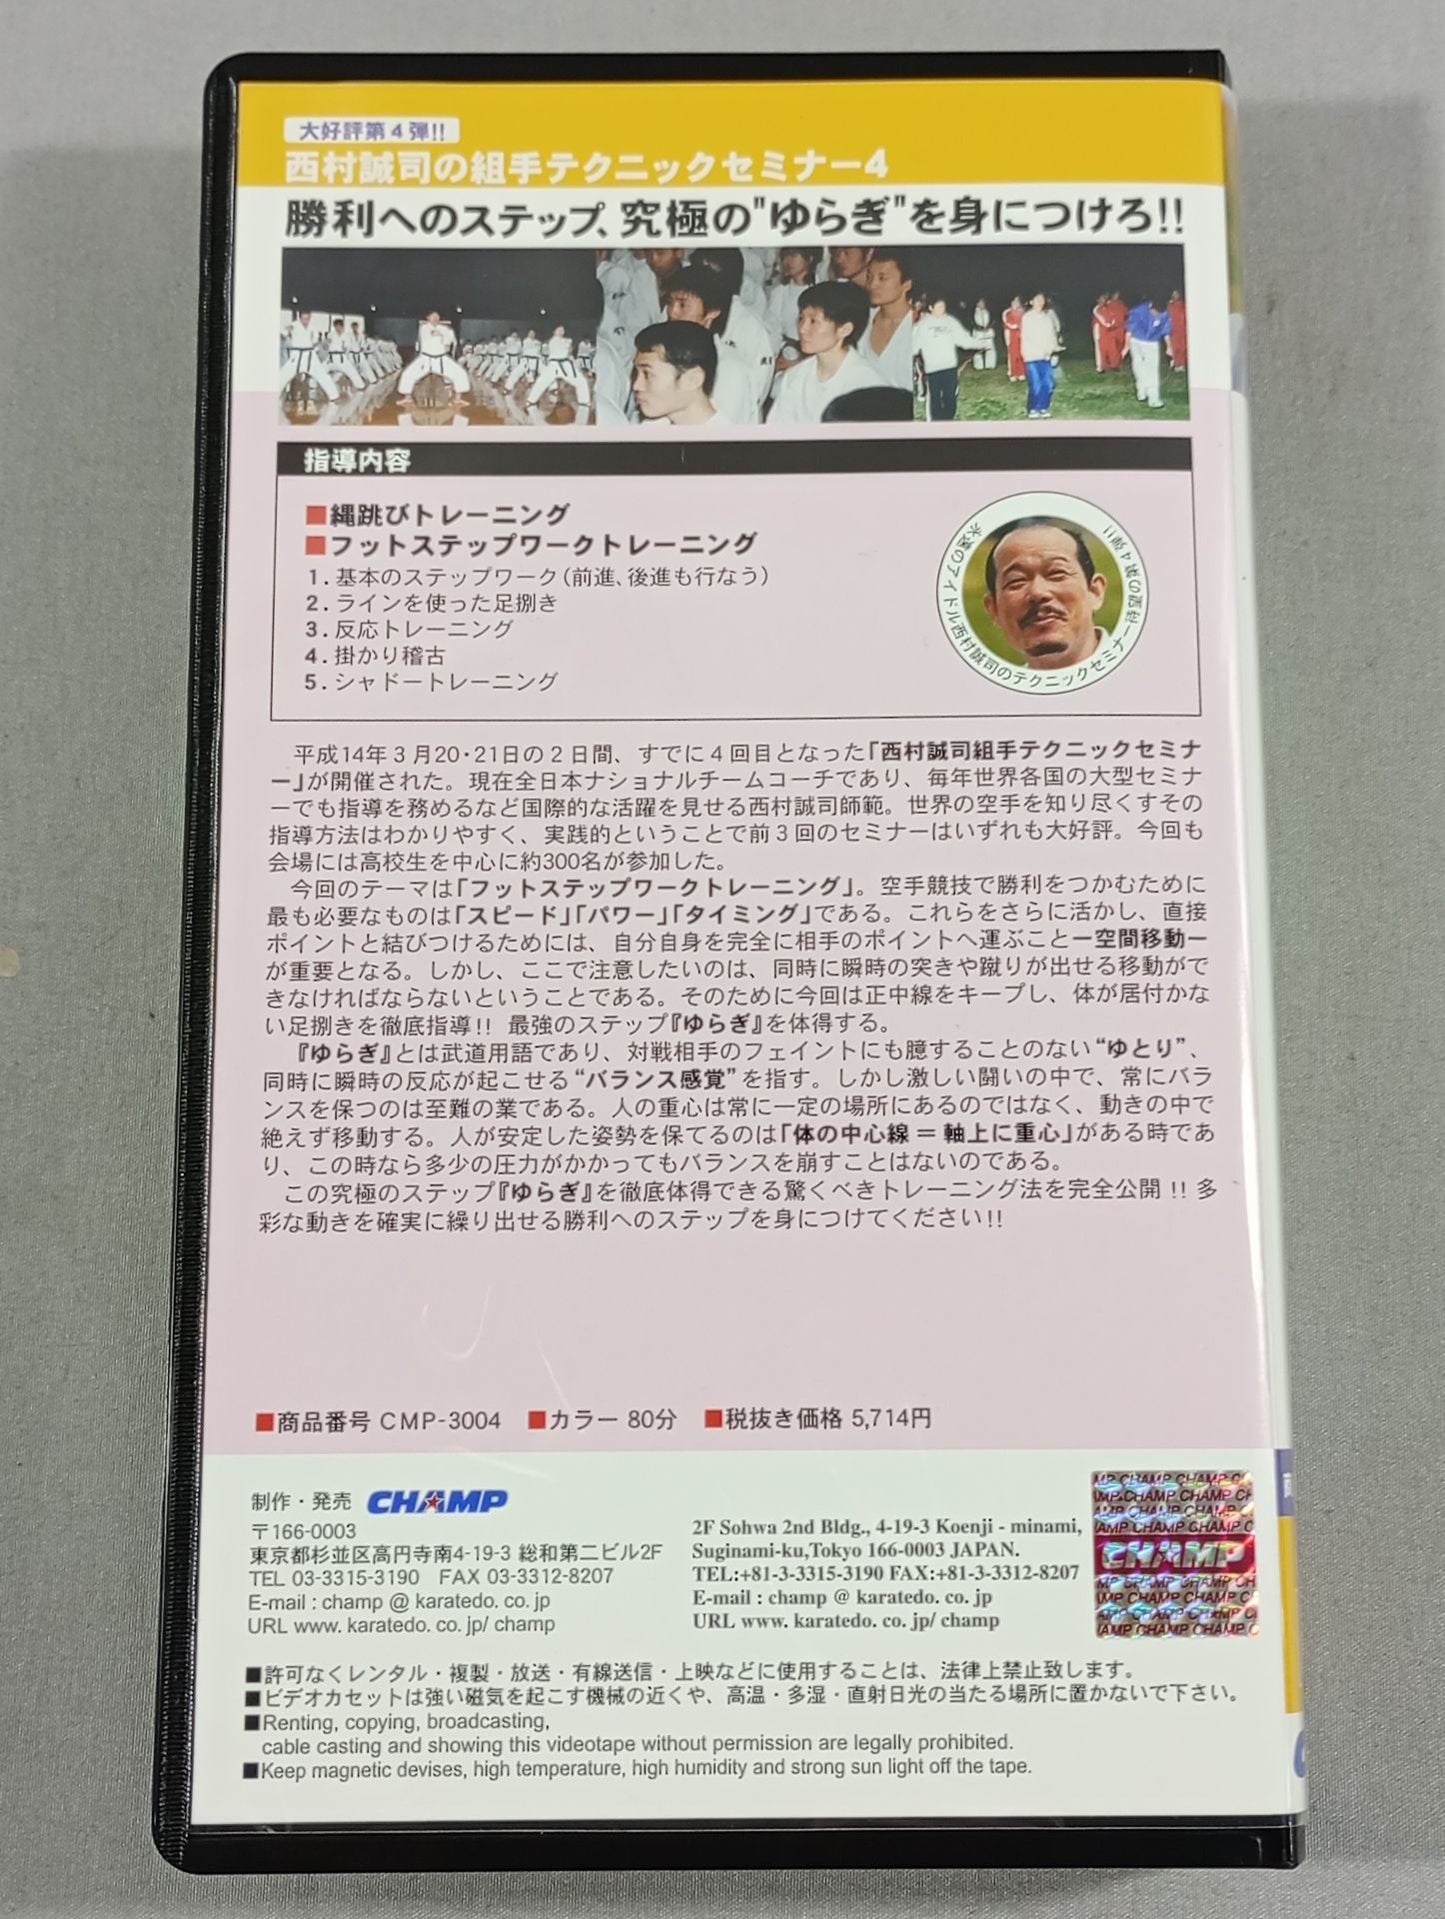 大好評第4弾!!
西村誠司の組手テクニックセミナー4
勝利へのステップ、究極の"ゆらぎ"を身につけろ!!
指導内容
■縄跳びトレーニング
■フットステップワークトレーニング
1．基本のステップワーク（前進、後進も行なう）
2．ラインを使った足捌き
3．反応トレーニング
4．掛かり稽古
5．シャドートレーニング
永遠のアイドル西村誠司のテクニックセミナー待望の第4弾!!
平成14年3月20・21日の2日間、すでに4回目となった「西村誠司組手テクニックセミナ
ー」が開催された。現在全日本ナショナルチームコーチであり、毎年世界各国の大型セミナ
ーでも指導を務めるなど国際的な活躍を見せる西村誠司師範。世界の空手を知り尽くすその
指導方法はわかりやすく、実践的ということで前3回のセミナーはいずれも大好評。今回も
会場には高校生を中心に約300名が参加した。
今回のテーマは「フットステップワークトレーニング」。空手競技で勝利をつかむために
最も必要なものは「スピード」「パワー」「タイミング」である。これらをさらに活かし、直接
ポイントと結びつけるためには、自分自身を完全に相手のポイントへ運ぶことー空間移動ー
が重要となる。しかし、ここで注意したいのは、同時に瞬時の突きや蹴りが出せる移動がで
きなければならないということである。そのために今回は正中線をキープし、体が居付かな
い足捌きを徹底指導!! 最強のステップ『ゆらぎ』を体得する。
『ゆらぎ』とは武道用語であり、対戦相手のフェイントにも臆することのない“ゆとり”、
同時に瞬時の反応が起こせる“バランス感覚”を指す。しかし激しい闘いの中で、常にバラ
ンスを保つのは至難の業である。人の重心は常に一定の場所にあるのではなく、動きの中で
絶えず移動する。人が安定した姿勢を保てるのは「体の中心線＝軸上に重心」がある時であ
り、この時なら多少の圧力がかかってもバランスを崩すことはないのである。
この究極のステップ『ゆらぎ』を徹底体得できる驚くべきトレーニング法を完全公開!! 多
彩な動きを確実に繰り出せる勝利へのステップを身につけてください!!
■商品番号 CMP-3004 ■カラー 80分 ■税抜き価格 5,714円
制作・発売 CHAMP
〒166-0003
東京都杉並区高円寺南4-19-3 総和第二ビル2F
TEL 03-3315-3190 FAX 03-3312-8207
E-mail : champ @ karatedo. co. jp
URL www. karatedo. co. jp/ champ
2F Sohwa 2nd Bldg., 4-19-3 Koenji - minami,
Suginami-ku,Tokyo 166-0003 JAPAN.
TEL:+81-3-3315-3190 FAX:+81-3-3312-8207
E-mail : champ @ karatedo. co. jp
URL www. karatedo. co. jp/ champ
CHAMP
■許可なくレンタル・複製・放送・有線送信・上映などに使用することは、法律上禁止致します。
■ビデオカセットは強い磁気を起こす機械の近くや、高温・多湿・直射日光の当たる場所に置かないで下さい。
■Renting, copying, broadcasting,
cable casting and showing this videotape without permission are legally prohibited.
■Keep magnetic devises, high temperature, high humidity and strong sun light off the tape.